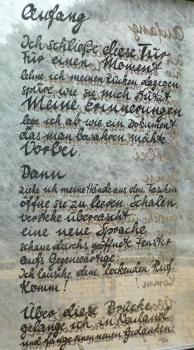 Anfang
Ich schließe diese Tür
Für einen Moment
lehne ich meinen Rücken dagegen
spüre wie sie mich stützt
Meine Erinnerungen
lege ich ab wie ein Dokument
das man bewahren möchte
Vorbei.
Dann
ziehe ich meine Hände aus den Taschen
öffne sie zu leeren Schalen
verstehe überrascht
eine neue Sprache
schaue durchs geöffnete Fenster
aufs Gegenwärtige:
Ich lausche dem lockenden Ruf
Komm!
Über diese Brücke
gelange ich in Neuland
und fange einen neuen Gedanken